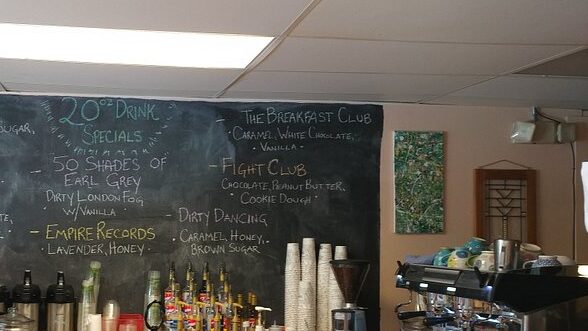 20oz DRINK
SPECIALS
UGAR,
- 50 SHADES OF
EARL GREY
DIRTY LONDON FOG
W/VANILLA
- EMPIRE RECORDS
• LAVENDER, HONEY •
- THE BREAKFAST CLUB
• CARAMEL, WHITE CHOCOLATE,
• VANILLA •
- FIGHT CLUB
CHOCOLATE, PEANUT BUTTER,
COOKIE DOUGH •
- DIRTY DANCING
• CARAMEL, HONEY, •
BROWN SUGAR